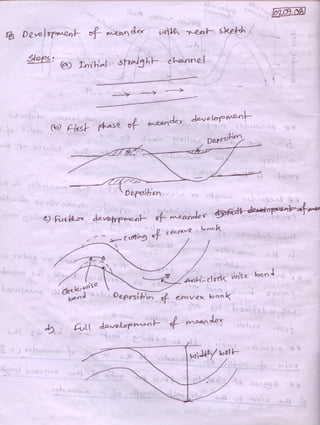 07.07.08
Development of meander with neat sketch.
Steps: (a) Initial straight channel
(b) First phase of meander development
Deposition
Deposition
c) Further development of meander
cutting of concave bank
Clockwise bend
anti-clock wise bend
Deposition of convex bank
d) Full development of meander
Width/belt